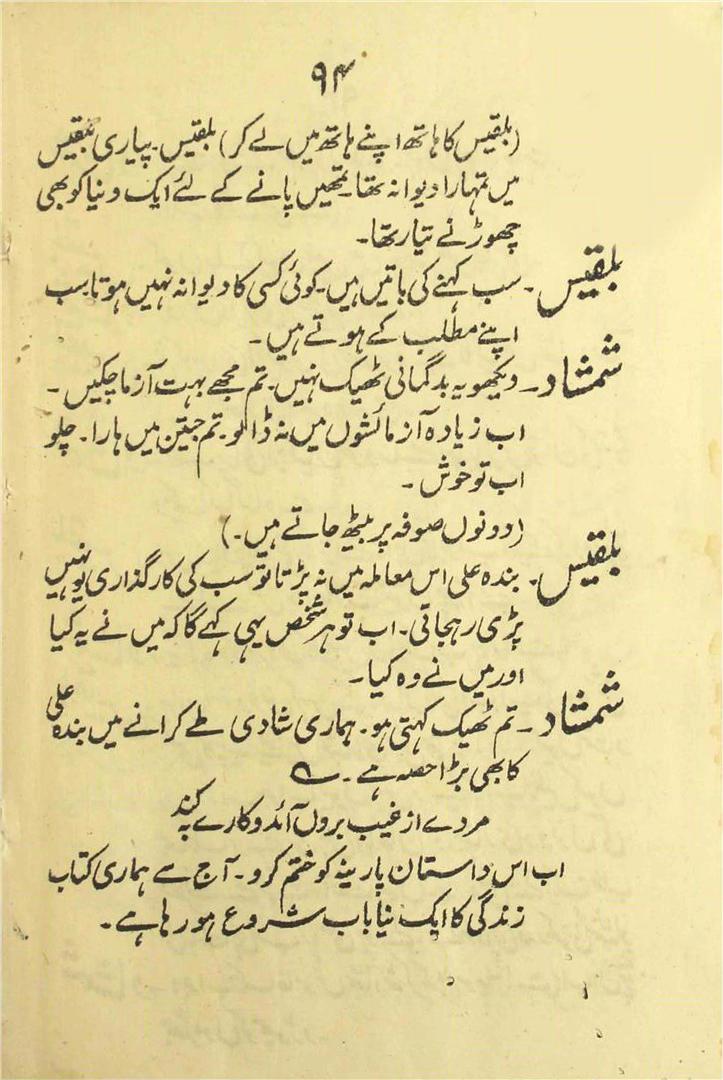 ۹۴
(بلقیس کا ہاتھ اپنے ہاتھ میں لے کر) بلقیس۔ پیاری بلقیس
میں تمہارا دیوانہ تھا۔ تمھیں پانے کے لئے ایک دنیا کو بھی
چھوڑنے تیار تھا۔
بلقیس۔ سب کہنے کی باتیں ہیں۔ کوئی کسی کا دیوانہ نہیں ہوتا۔ سب
اپنے مطلب کے ہوتے ہیں۔
شمشاد۔ دیکھو یہ بدگمانی ٹھیک نہیں۔ تم مجھے بہت آزما چکیں۔
اب زیادہ آزمائشوں میں نہ ڈالو۔ تم جیتن میں ہارا۔ چلو
اب تو خوش۔
(دونوں صوفہ پر بیٹھ جاتے ہیں۔)
بلقیس۔ بندہ علی اس معاملہ میں نہ پڑتا تو سب کی کارگذاری یونہیں
پڑی رہجاتی۔ اب تو ہر شخص یہی کہے گا کہ میں نے یہ کیا
اور میں نے وہ کیا۔
شمشاد۔ تم ٹھیک کہتی ہو۔ ہماری شادی طے کرانے میں بندہ علی
کا بھی بڑا حصہ ہے۔ ؎
مردے از غیب بروں آئد و کارے بہ کند
اب اس داستان پارینہ کو ختم کرو۔ آج سے ہماری کتاب
زندگی کا ایک نیا باب شروع ہو رہا ہے۔